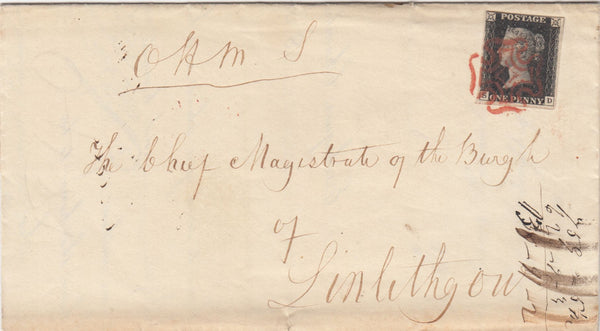 O H M S
POSTAGE
ONE PENNY D
The Chief Magistrate of the Burgh
of
Linlithgow